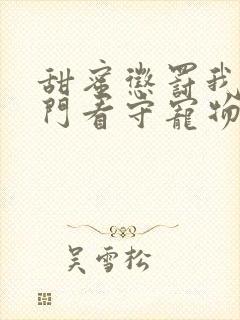 甜蜜惩罚我
门看守宠物
吴雪松